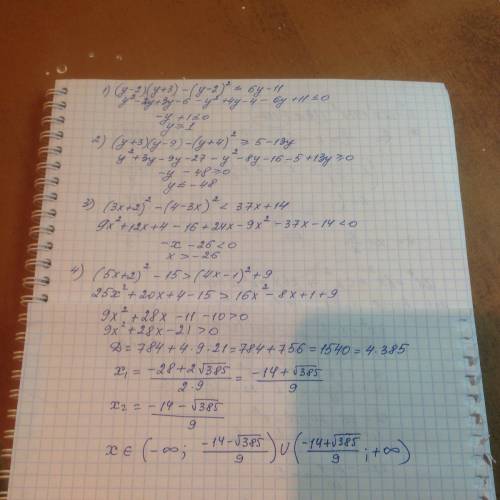 1) (y-2)(y+3) - (y-2)² ≤ 6y-11
y² - 2y + 3y - 6 - y² + 4y - 4 - 6y + 11 ≤ 0
-y + 1 ≤ 0
y ≥ 1
2) (y+3)(y-9) - (y+4)² ≥ 5-13y
y² + 3y - 9y - 27 - y² - 8y - 16 - 5 + 13y ≥ 0
-y - 48 ≥ 0
y ≤ -48
3) (3x+2)² - (4-3x)² < 37x+14
9x² + 12x + 4 - 16 + 24x - 9x² - 37x - 14 < 0
-x - 26 < 0
x > -26
4) (5x+2)² - 15 > (4x-1)² + 9
25x² + 20x + 4 - 15 > 16x² - 8x + 1 + 9
9x² + 28x - 11 - 10 > 0
9x² + 28x - 21 > 0
D = 784 + 4·9·21 = 784 + 756 = 1540 = 4·385
x₁ = (-28 + 2√385)/(2·9) = (-14 + √385)/9
x₂ = (-14 - √385)/9
x ∈ (-∞; (-14-√385)/9) ∪ ((-14+√385)/9; +∞)